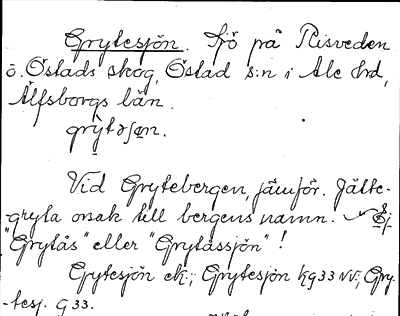 Grytesjön. Sjö på Risveden
ö. Östads skog, Östad s:n i Ale hd,
Älfsborgs län.
grỳtəʃøn.
Vid Grytebergen, jämför. Jätte-
gryta orsak till bergens namn. Ej
"Grytås" eller "Grytåssjön"!
Grytesjön ek.; Grytesjön kg 33 NV.; Gry-
-tesj. G 33.